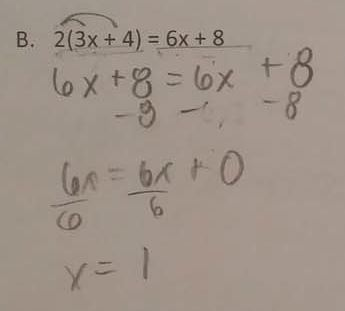 B. 2(3x + 4) = 6x + 8
6x + 8 = 6x + 8
-8 - -8
6x = 6x + 0
6 6
x = 1